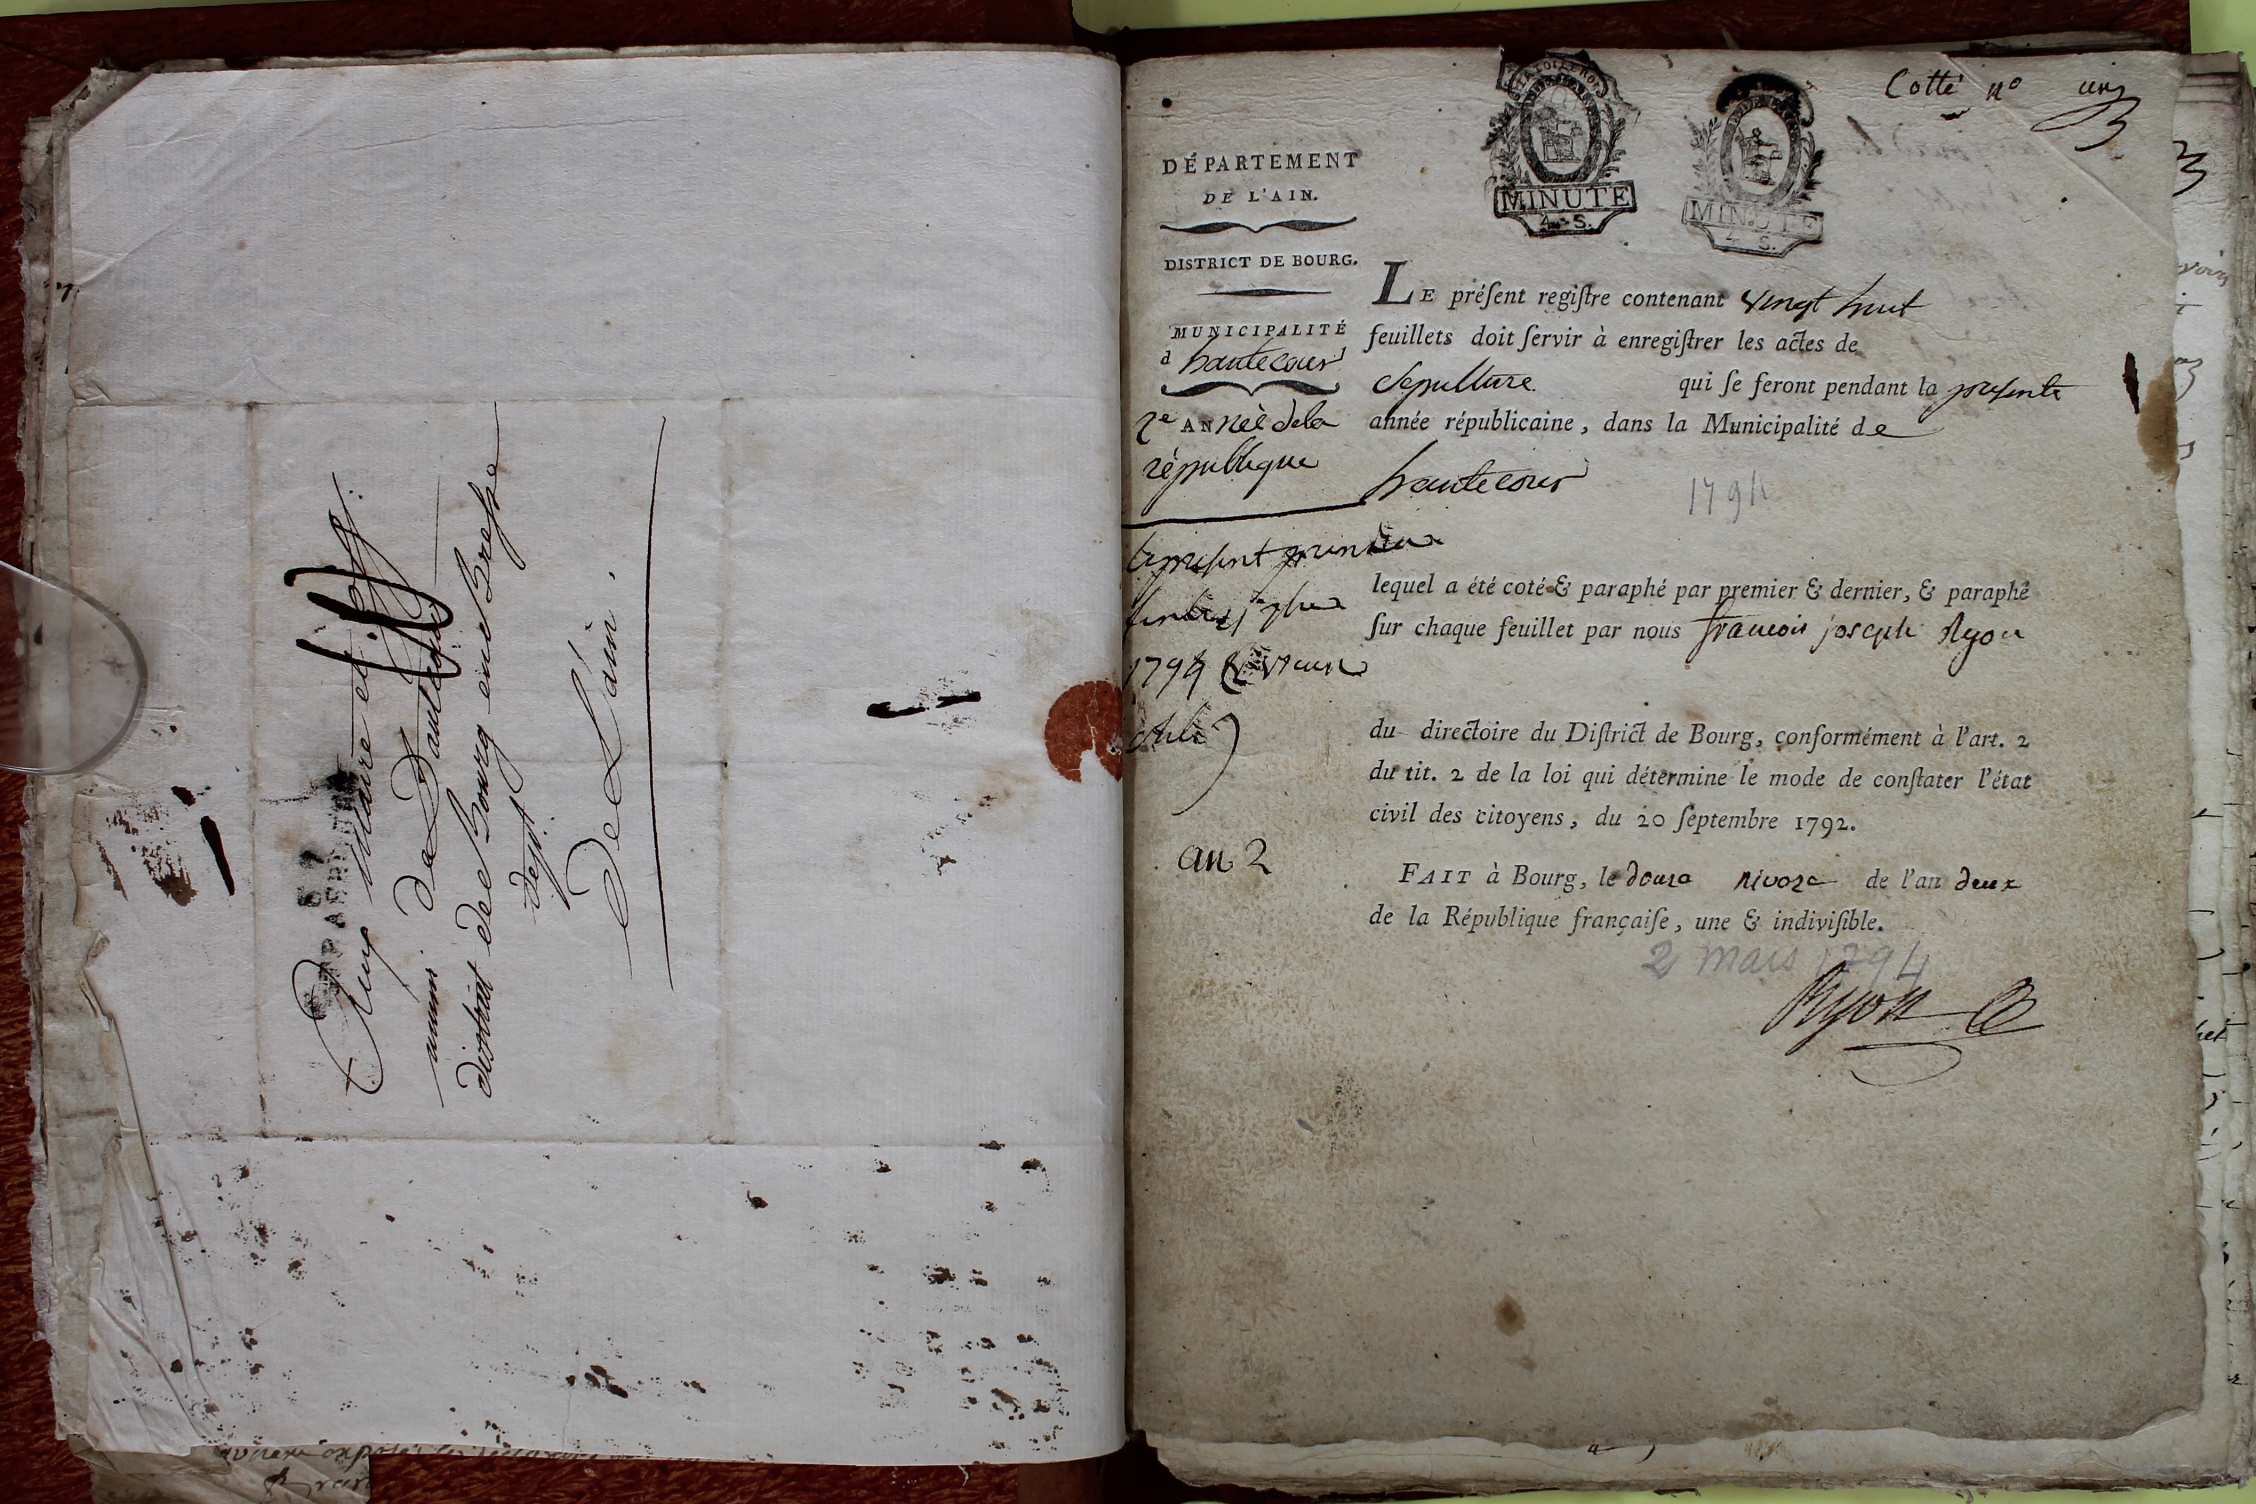 Aux Maire et off.
munis. de hautecour
district de Bourg en Bresse
dept.
De L'ain.
Cotté nº un
DÉPARTEMENT
DE L'AIN.
DISTRICT DE BOURG.
MUNICIPALITÉ
d hautecour
2e ANNéé de la
république
MINUTE
4. S.
MINUTE
4 S.
LE préſent regiſtre contenant vingt huit
feuillets doit ſervir à enregiſtrer les actes de
Sepulture qui ſe feront pendant la presente
année républicaine, dans la Municipalité de
hautecour
1794
1794
an 2
lequel a été coté & paraphé par premier & dernier, & paraphé
ſur chaque feuillet par nous francois joseph Ryon
du directoire du Diſtrict de Bourg, conformément à l'art. 2
du tit. 2 de la loi qui détermine le mode de conſtater l'état
civil des citoyens, du 20 ſeptembre 1792.
FAIT à Bourg, le douze nivoze de l'an deux
de la République françaiſe, une & indiviſible.
2 mars 1794
Ryon